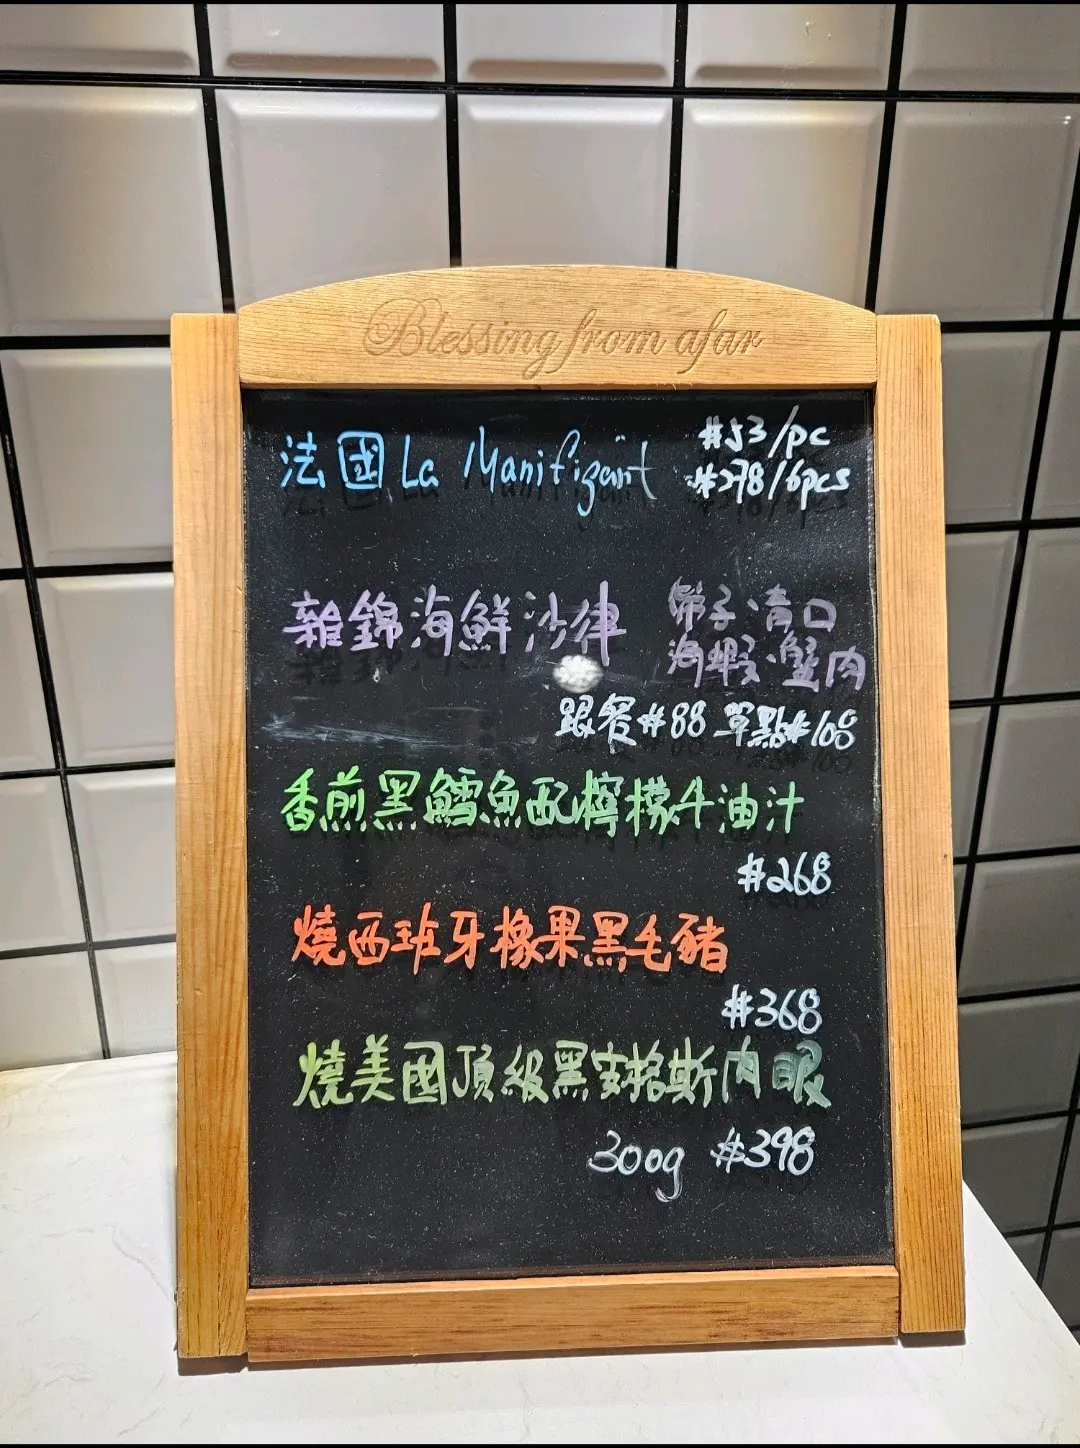 Blessing from afar
法國 La Manifigant #53/pc
#278/6pcs
雜錦海鮮沙律 帶子、青口
海蝦、蟹肉
跟餐#88 單點#108
香煎黑鱈魚配檸檬牛油汁
#268
燒西班牙橡果黑毛豬
#368
燒美國頂級黑安格斯肉眼
300g #398